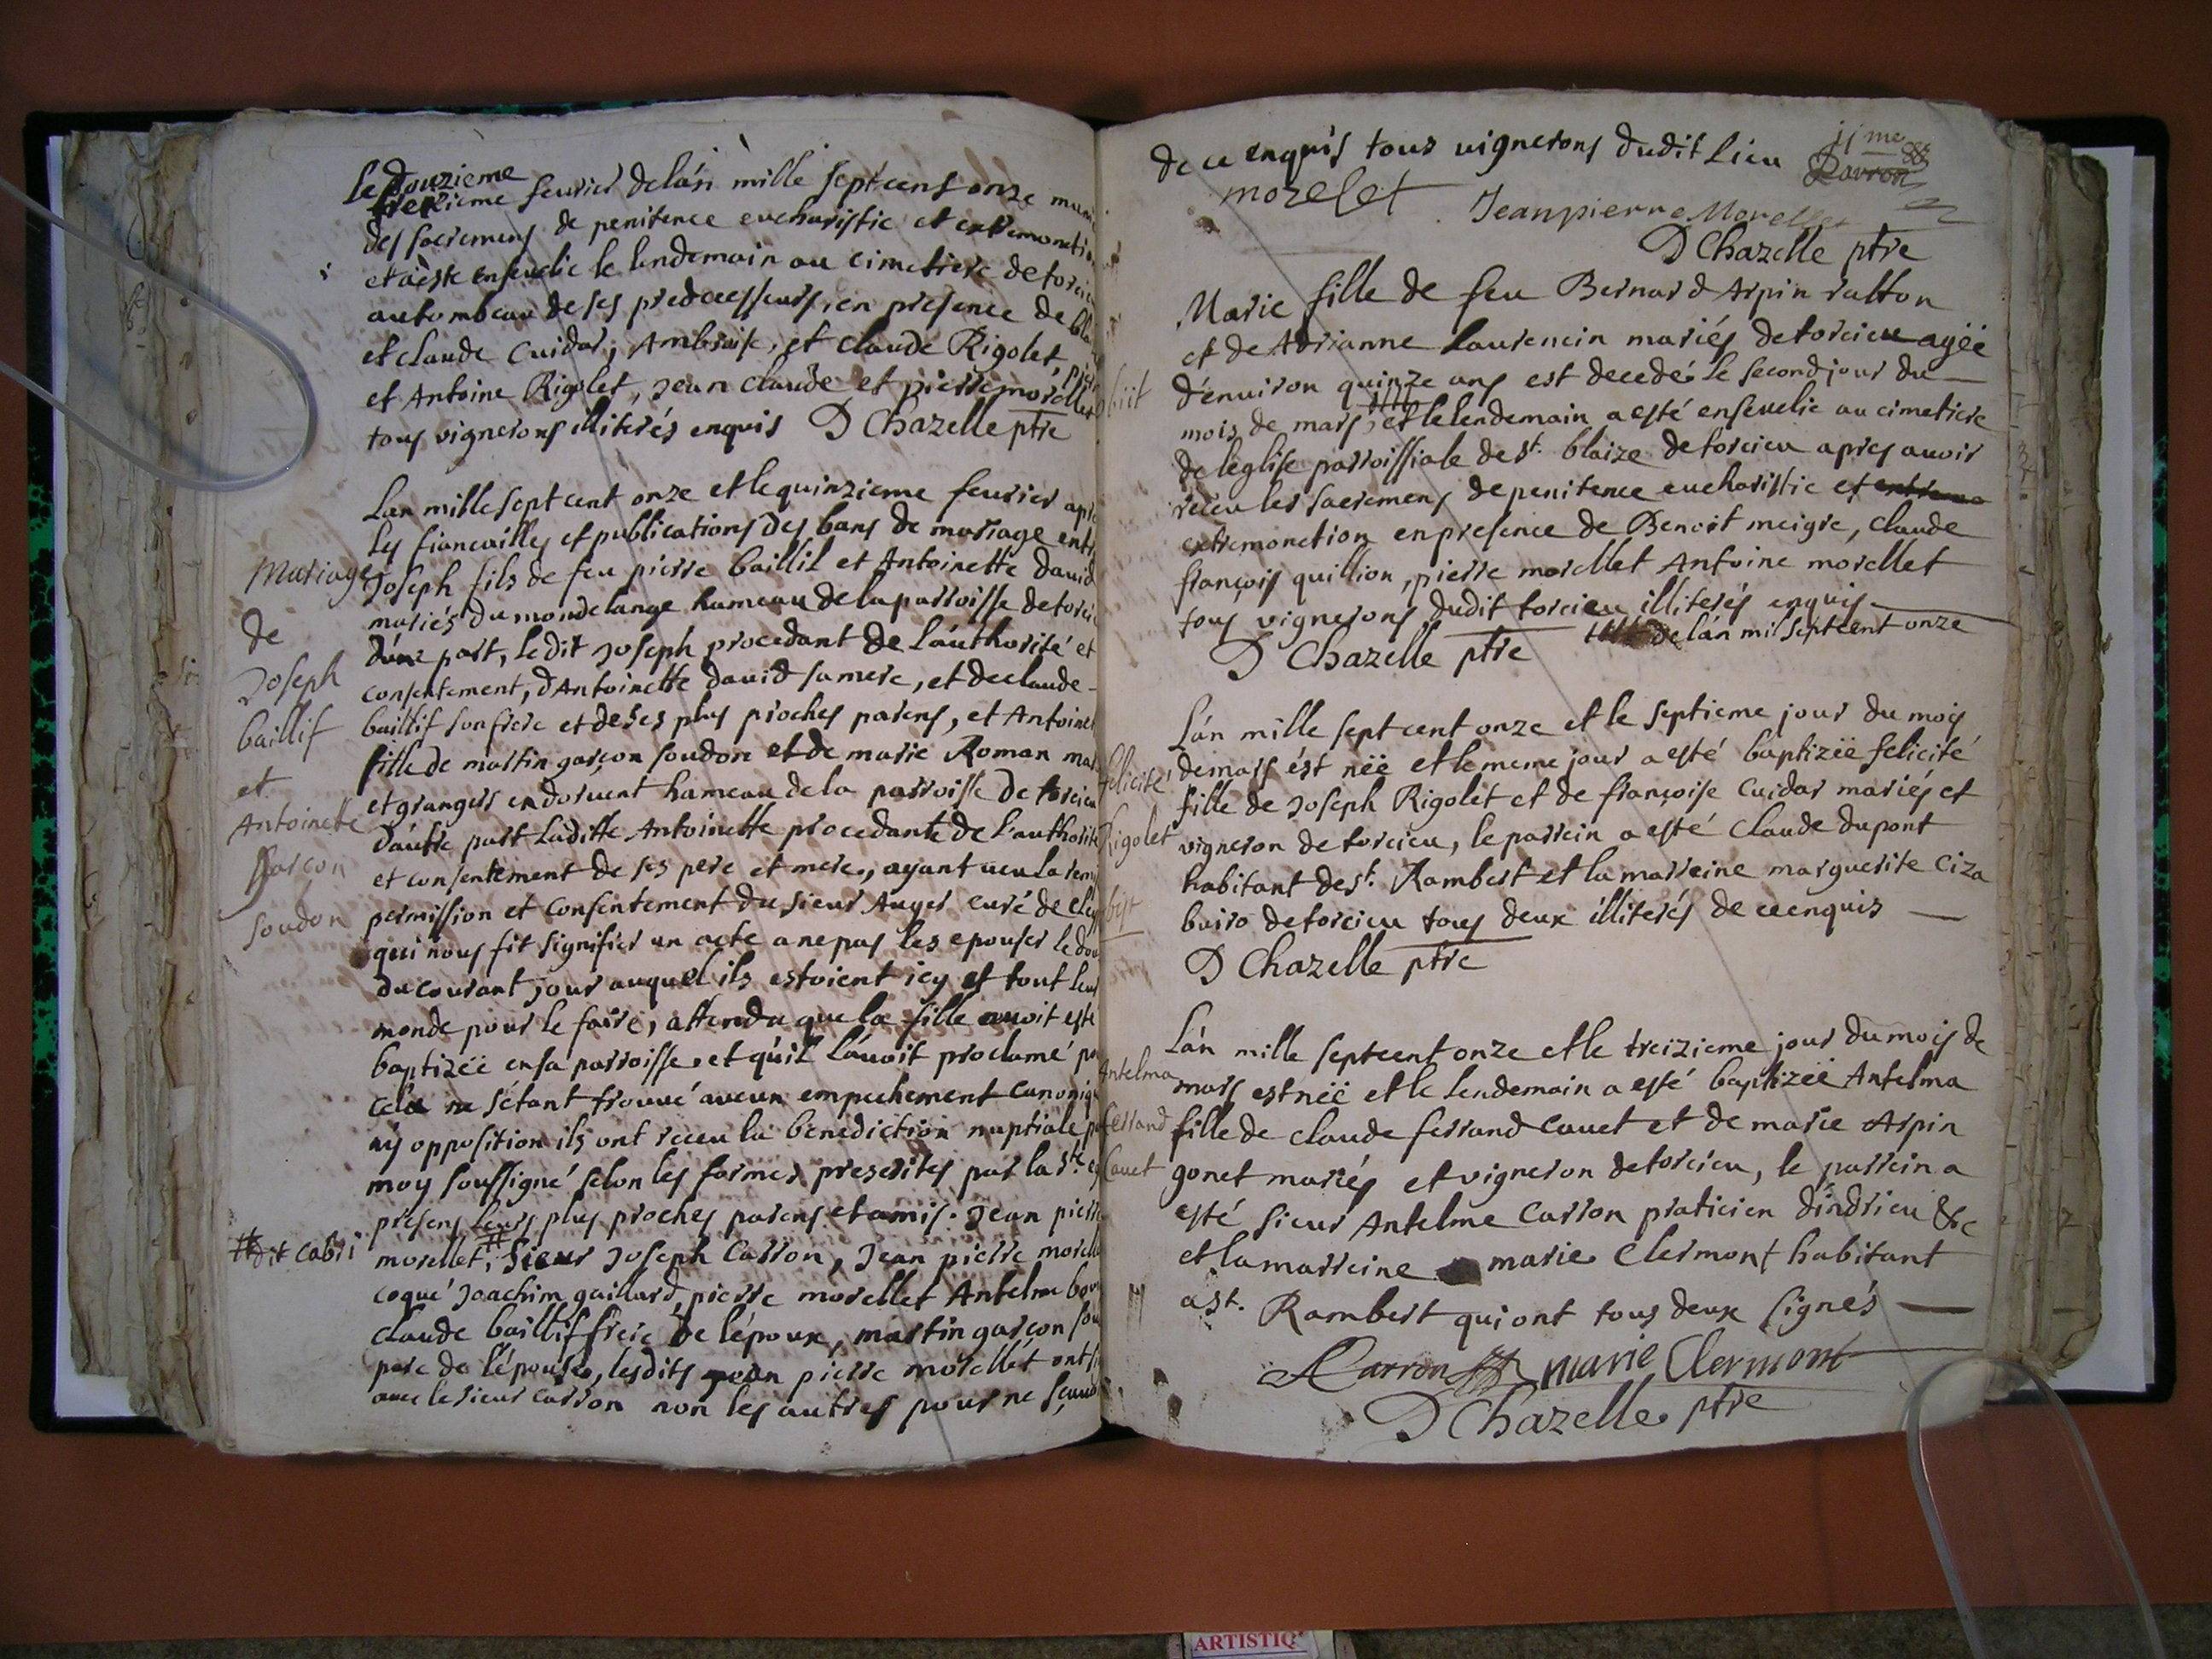 le douzieme
treizieme feurier delán mille sept cens onze muni
des sacremens de penitence eucharistie et extremonction
et a este enseuelie le lendemain au cimetiere de torcieu
au tombeau de ses predecesseurs, en presence de
et claude Cuidar, Ambroise, et claude Rigolet,
et Antoine Rigolet, Jean claude et pierre morellet
tous vignerons illiterés enquis D Chazelle ptre
Mariage
de
Joseph
baillif
et
Antoinette
garçon
soudon
Lan mille sept cent onze et le quinzieme feurier apres
les fiancailles et publications des bans de mariage entre
Joseph fils de feu pierre baillif et Antoinette dauid
mariés du mondelange hameau de la parroisse de torcieu
dúne part, ledit Joseph procedant de láuthorité et
consentement, dAntoinette dauid sa mere, et de claude
baillif son frere et de ses plus proches parens, et Antoinette
fille de martin garçon soudon et de marie Roman mariés
et grangers en doruent hameau de la parroisse de torcieu
dáutre part Laditte Antoinette procedante de Lauthorité
et consentement de ses pere et mere, ayant ueu la
permission et consentement du sieur Auger curé de
qui nous fit signifier un acte a ne pas les epouser le
du courant jour auquel ils estoient icy et tout leur
monde pour le faire, attendu que la fille auoit esté
baptizëe en sa parroisse, et quíl láuoit proclamé
cela ne sétant trouué aucun empechement canonique
ny opposition ils ont receu la benediction nuptiale
moy soussigné selon les formes prescrites par la ste
presens leurs plus proches parens et amis. Jean pierre
# dit cabri
morellet, # Sieur Joseph Carron, Jean pierre morellet
coqué Joachim gaillard, pierre morellet Antelme
claude baillif frere de lépoux, martin garçon
pere de lépouse, lesdits jean pierre morellet ont
auec le sieur carron non les autres pour ne
de ce enquis tous vignerons dudit Lieu
morelet Jeanpierre Morellet
D Chazelle ptre
obiit
Marie fille de feu Bernard Arpin ratton
et de Adrianne Laurencin mariés de torcieu agëe
dénuiron quinze ans est decedé le second jour du
mois de mars, et le lendemain a esté enseuelie au cimetiere
de léglise parroissiale de st. blaize de torcieu apres auoir
receu les sacremens de penitence eucharistie et
extremonction en presence de Benoit meigre, claude
françois quillion, pierre morellet Antoine morellet
tous vignerons dudit torcieu illiterés enquis
D Chazelle ptre de lán mil sept cent onze
felicité
Rigolet
Lán mille sept cent onze et le septieme jour du mois
de mars ést nëe et le meme jour a esté baptizëe felicité
fille de Joseph Rigolet et de françoise Cuidar mariés et
vigneron de torcieu, le parrein a esté claude dupont
habitant de st. Rambert et la marreine marguerite ciza
buiro de torcieu tous deux illiterés de ce enquis
D Chazelle ptre
Antelma
ferrand
Cauet
Lán mille sept cent onze et le treizieme jour du mois de
mars est nëe et le lendemain a esté baptizëe Antelma
fille de claude ferrand Cauet et de marie Arpin
gonet mariés et vigneron de torcieu, le parrein a
esté sieur Antelme Carron praticien dindrieu &c
et la marreine marie Clermont habitant
a st. Rambert qui ont tous deux signés
A Carron marie Clermont
D Chazelle ptre
ARTISTIQ